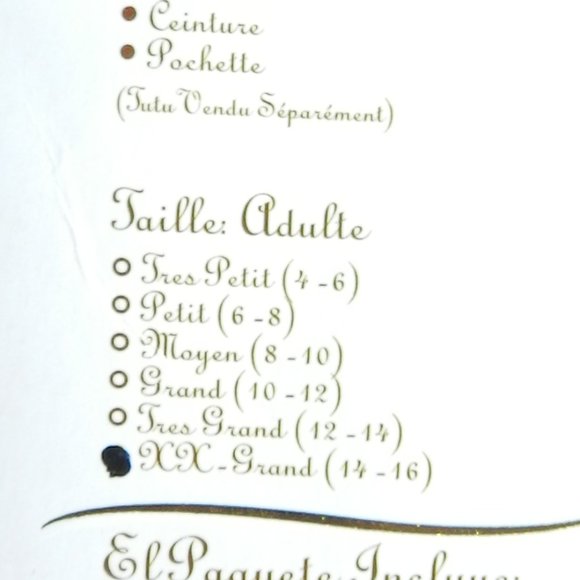 Ceinture
Pochette
(Tutu Vendu Séparément)
Taille: Adulte
Tres Petit (4 - 6)
Petit (6 - 8)
Moyen (8 - 10)
Grand (10 - 12)
Tres Grand (12 - 14)
XX - Grand (14 - 16)
El Paquete Incluye: